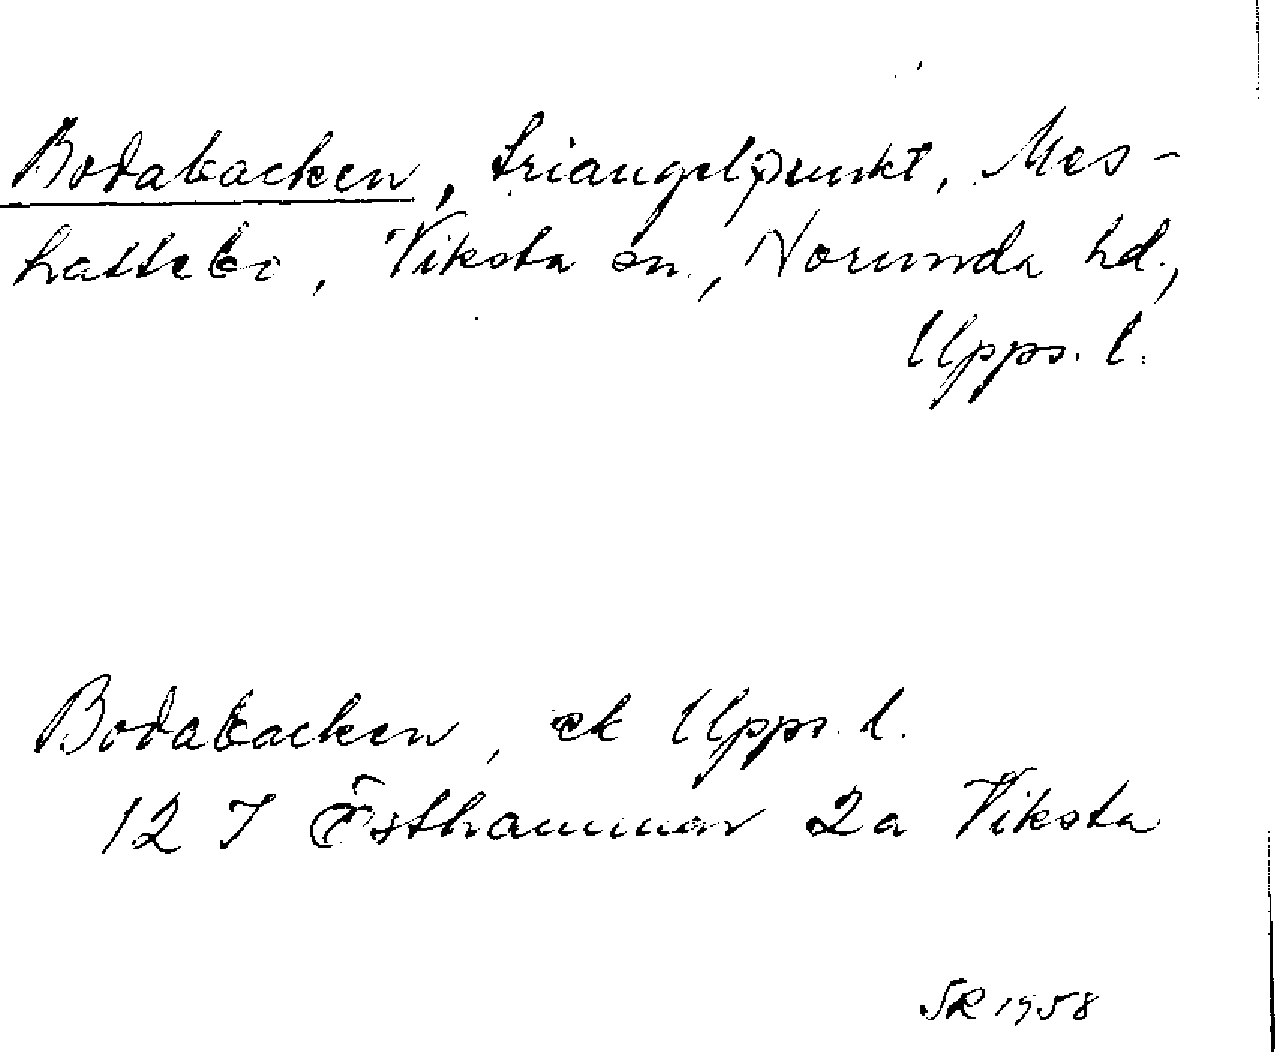 Bodabacken, triangelpunkt, Mes-
hattebo, Viksta sn., Norunda hd.,
Upps. l.
Bodabacken, ek Upps. l.
12 I Östhammar 2a Viksta
SR 1958